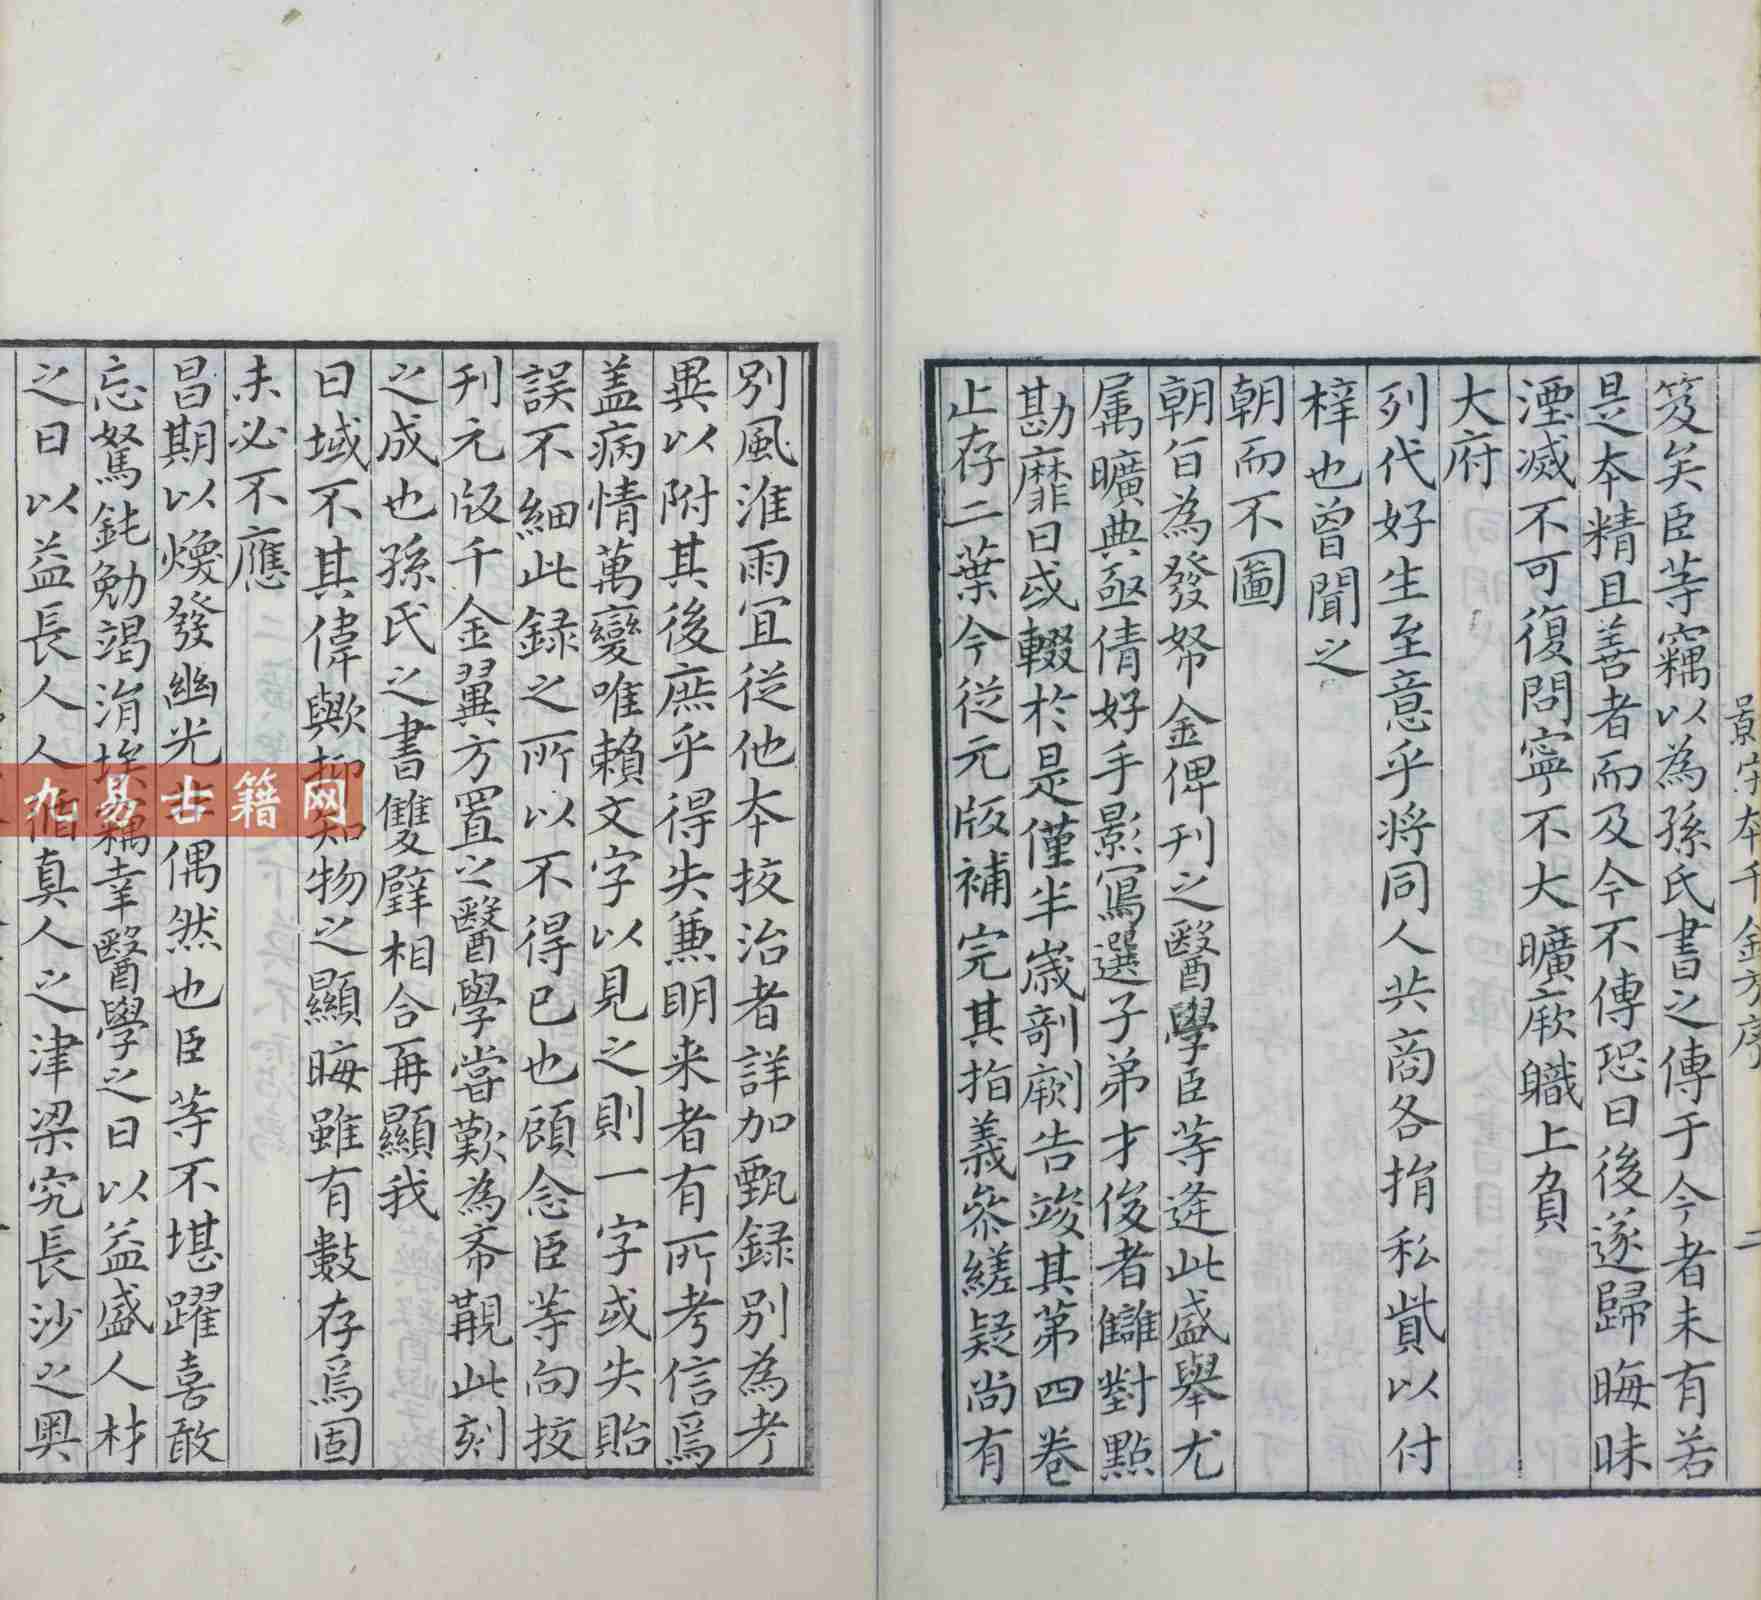 景宋本千金方序
二
笈矣臣等竊以為孫氏書之傳于今者未有若
是本精且善者而及今不傳恐日後遂歸晦昧
湮滅不可復問寧不大曠厥職上負
大府
列代好生至意乎將同人共商各捐私貲以付
梓也曾聞之
朝而不圖
朝旨為發帑金俾刊之醫學臣等逢此盛舉尤
属曠典亟倩好手影寫選子弟才俊者讎對點
勘靡日或輟於是僅半歲剞劂告竣其第四卷
止存二葉今從元版補完其指義參縒疑尚有
別風淮雨宜從他本挍治者詳加甄録別為考
異以附其後庶乎得失兼明来者有所考信焉
盖病情萬變唯賴文字以見之則一字或失貽
誤不細此録之所以不得已也頋念臣等向挍
刊元版千金翼方置之醫學嘗歎為希覯此刻
之成也孫氏之書雙璧相合再顯我
日域不其偉歟抑知物之顯晦雖有數存焉固
未必不應
昌期以煥發幽光非偶然也臣等不堪躍喜敢
忘駑鈍勉竭涓埃竊幸醫學之日以益盛人材
之日以益長人人循真人之津梁究長沙之奥
九易古籍网